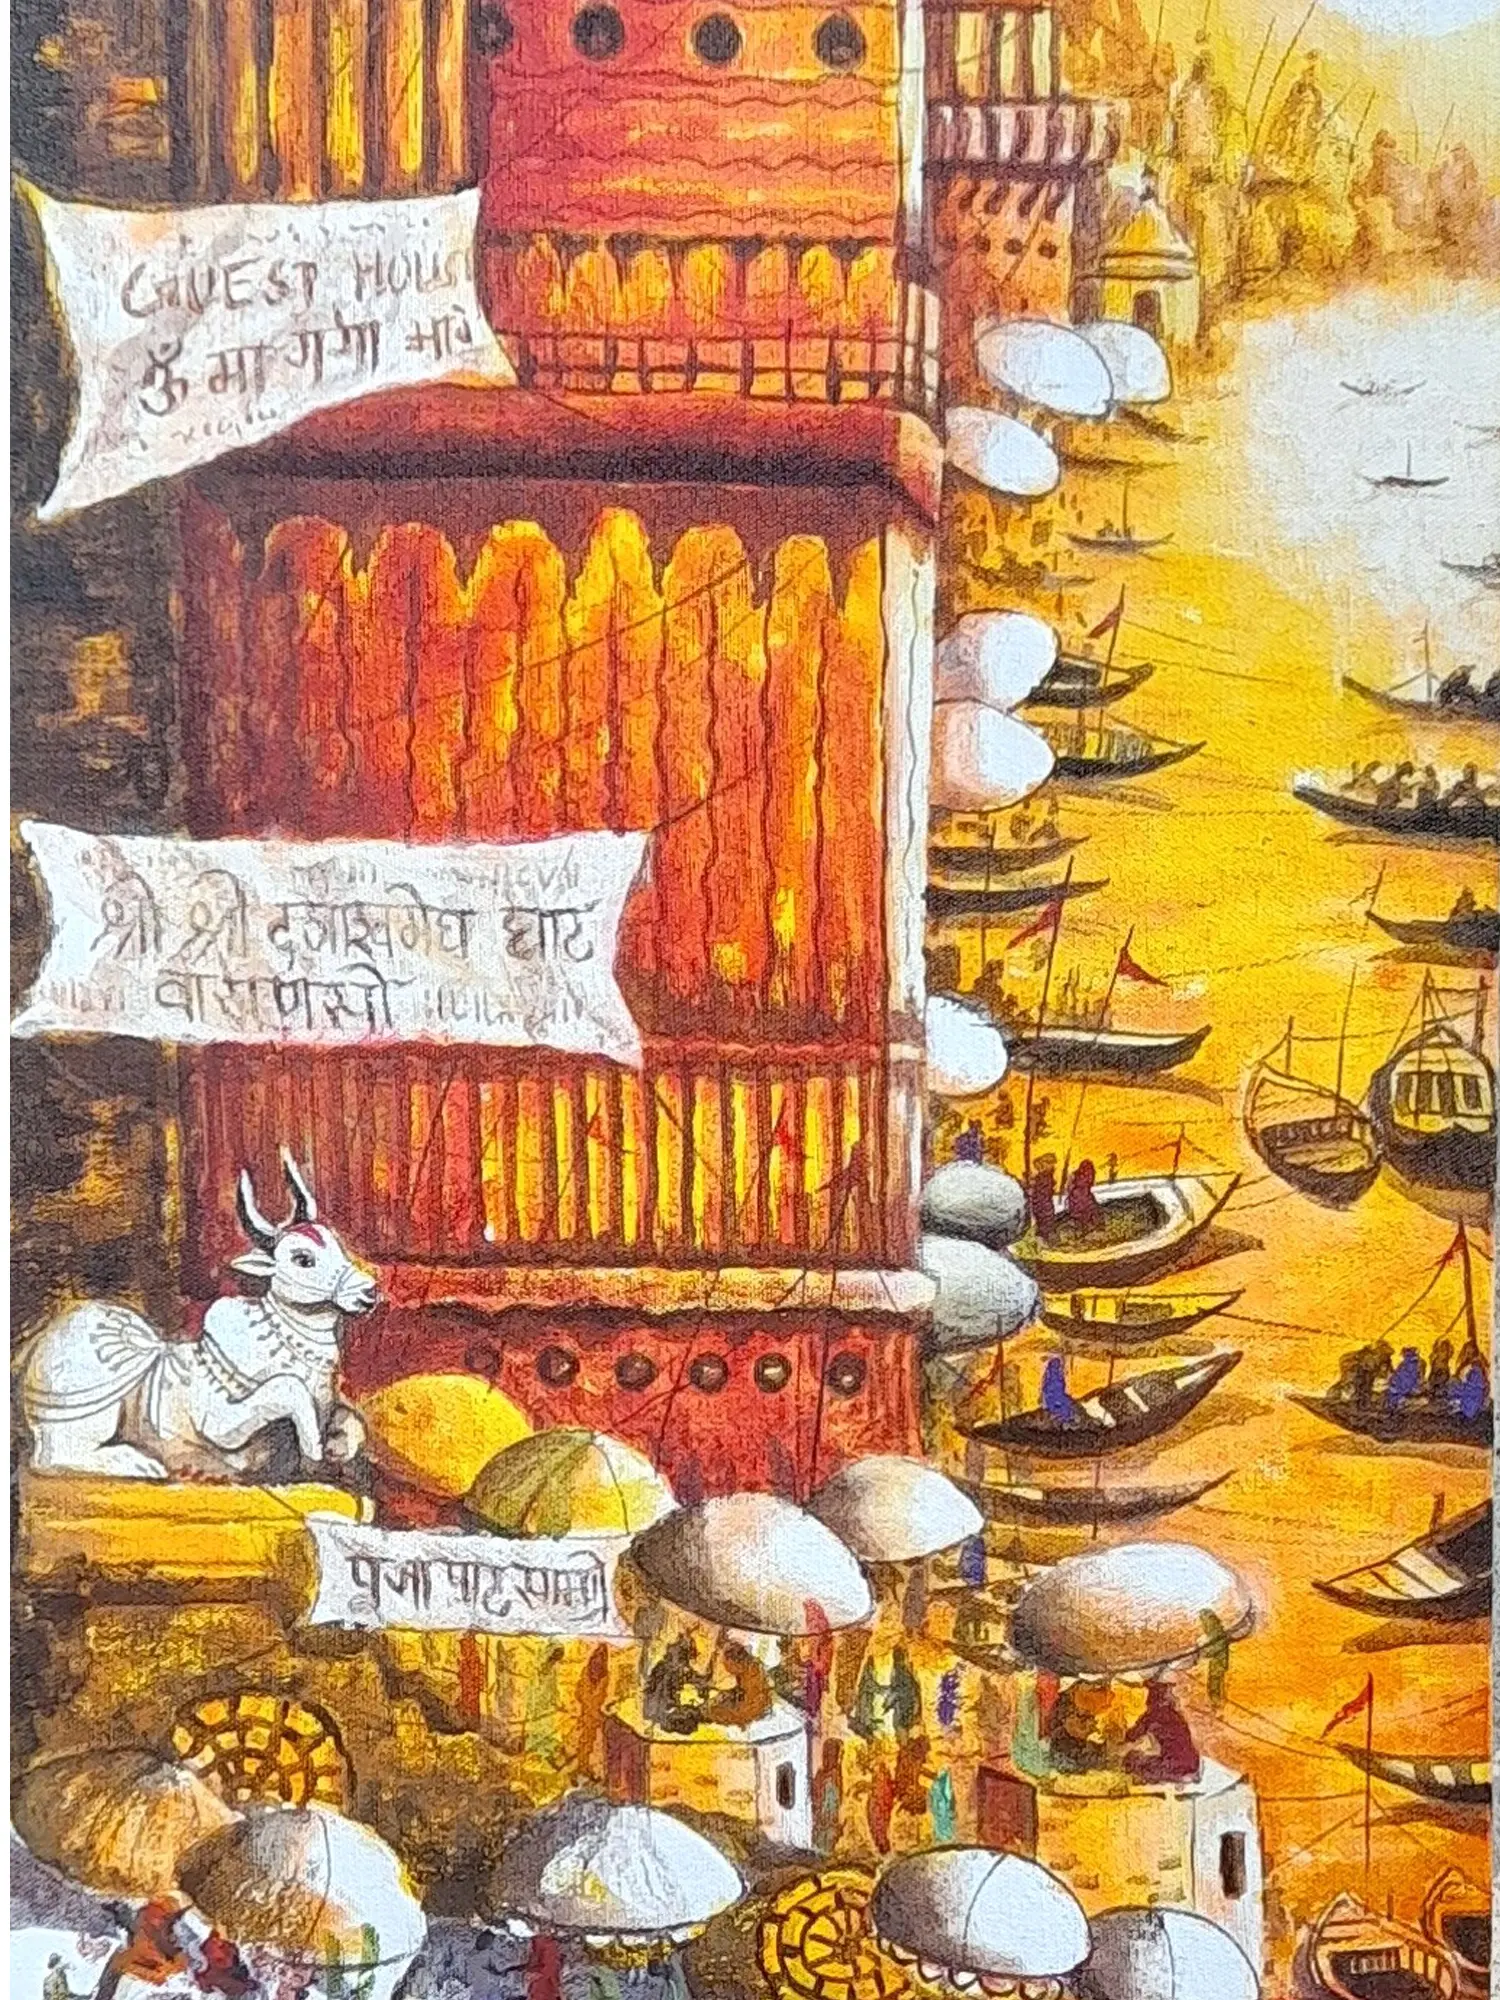 GUEST HOUS
ॐ मा गंगा
श्री श्री दशाश्वमेघ घाट
वाराणसी
पूजा पाठ सामग्री